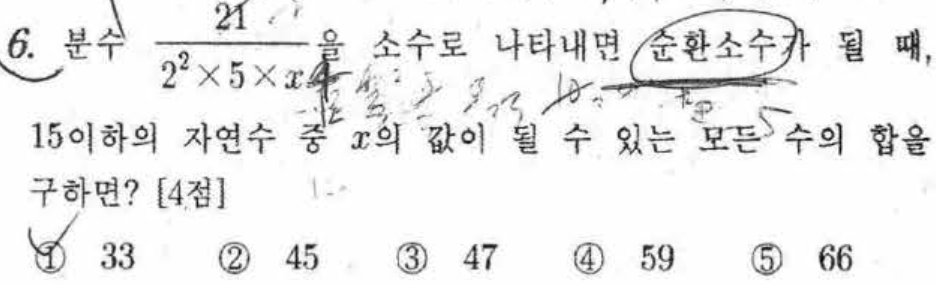 6. 분수 21/(2²×5×x)을 소수로 나타내면 순환소수가 될 때,
15이하의 자연수 중 x의 값이 될 수 있는 모든 수의 합을
구하면? [4점]
① 33 ② 45 ③ 47 ④ 59 ⑤ 66